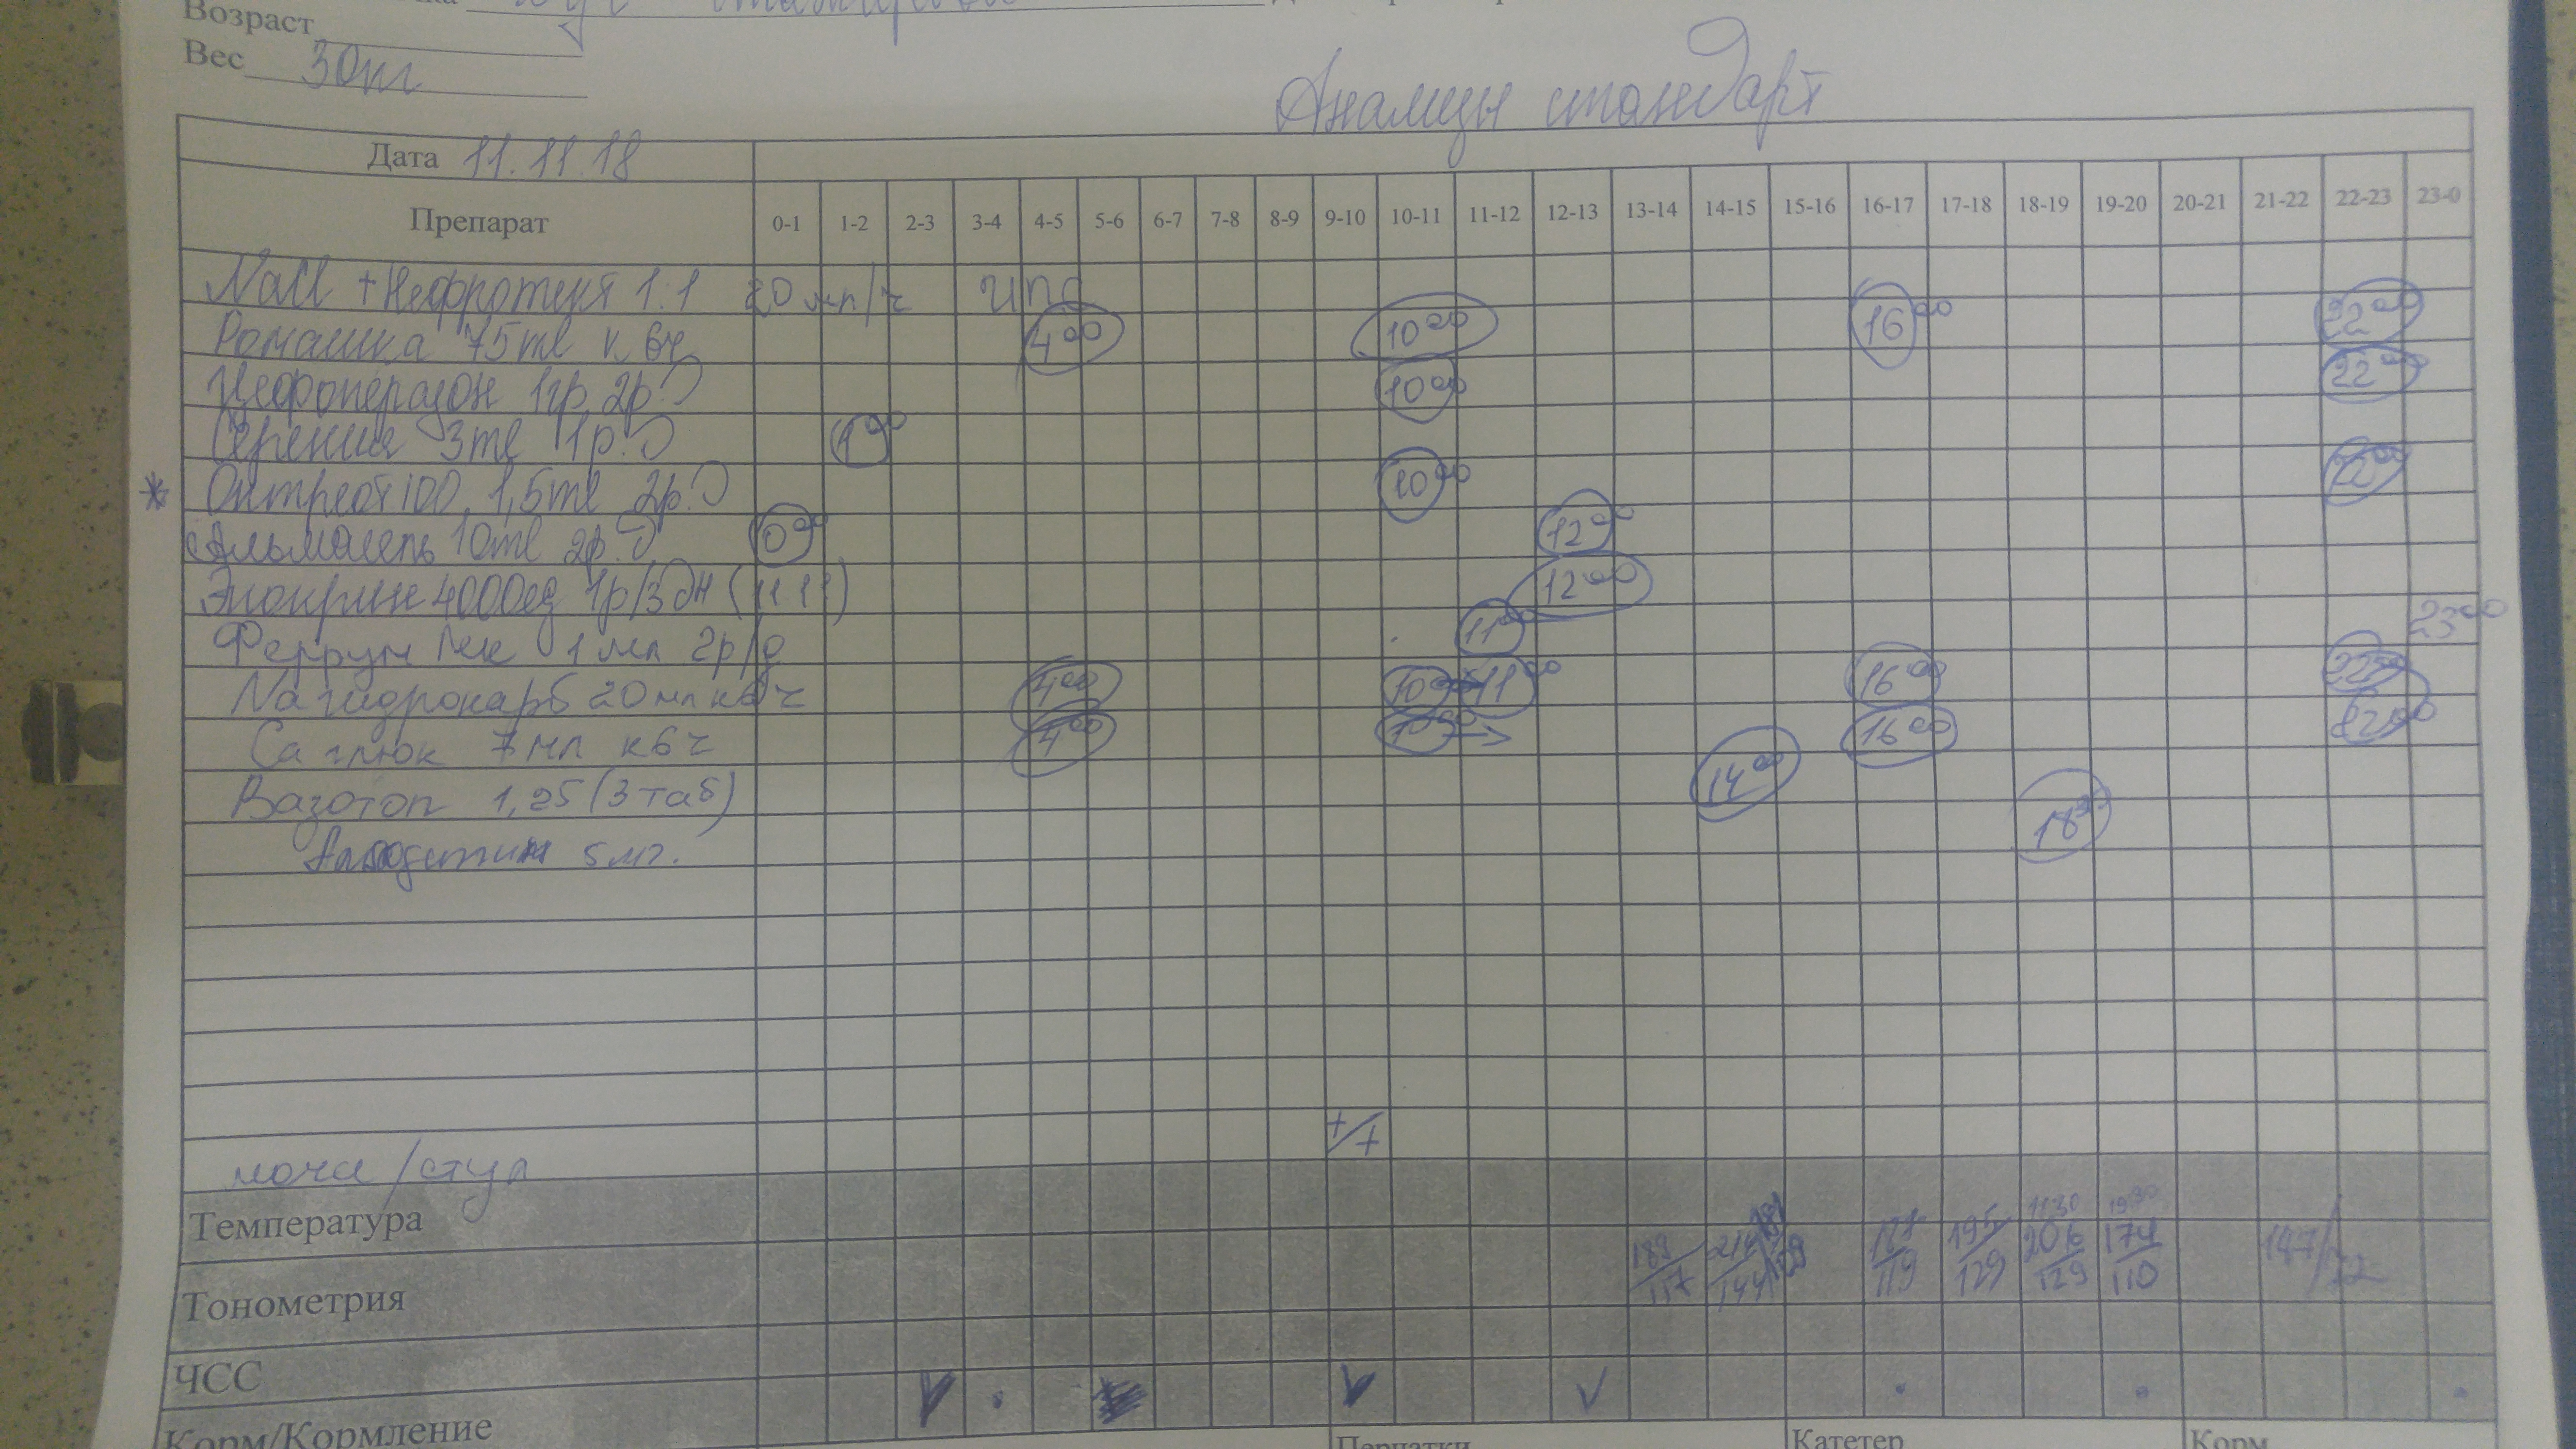 Возраст
Вес 30кг
Анализы стандарт
Дата 11.11.18
Препарат 0-1 1-2 2-3 3-4 4-5 5-6 6-7 7-8 8-9 9-10 10-11 11-12 12-13 13-14 14-15 15-16 16-17 17-18 18-19 19-20 20-21 21-22 22-23 23-0
NaCl + Нефротект 1:1 20 мл/ч ИПС
Ромашка 75ml к 6ч 4 00 10 00 16 00 22 00
Цефоперазон 1гр 2р.D 10 00 22 00
Серения 3ml 1р.D 1 00
* Онтреот100 1,5ml 2р.D 10 00 22 00
Альмагель 10ml 2р.D 0 00 12 00
Эпокрин 4000ед 1р/3дн (11.11) 12 00
Феррум Лек 1 мл 2р/д 11 00 23 00
Na гидрокарб 20мл к6ч 4 00 10 00 11 00 16 00 22 00
Ca глюк 7мл к6ч 4 00 10 00 → 16 00 22 00
Вазотоп 1,25 (3 таб) 14 00
Амлодипин 5мг. 18 30
моча/стул +/+
Температура
Тонометрия 189/117 195/129 206/129 19 30 174/110 147/72
ЧСС
Корм/Кормление
Перчатки
Катетер
Корм